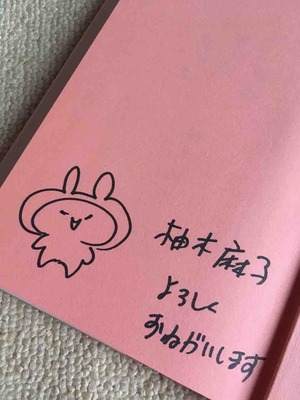 柚木麻子
よろしく
おねがいします